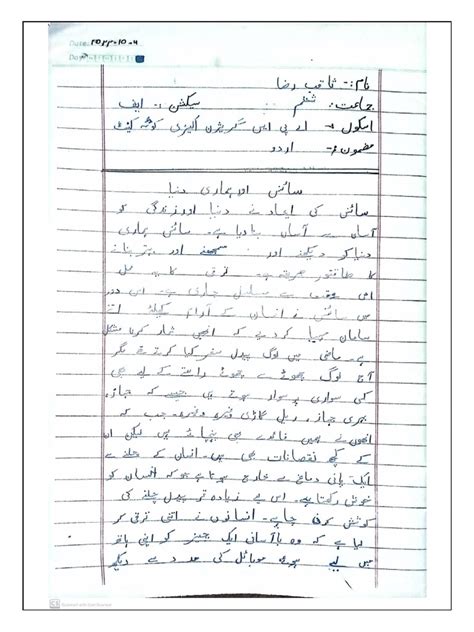 Date: 2022-10-4
Day:
نام:- ثاقب رضا
جماعت: ششم سیکشن:- ایف
اسکول:- اے پی ایس گریژن اکیڈمی کوئٹہ کینٹ
مضمون:- اردو
سائنس اور ہماری دنیا
سائنس کی ایجاد نے دنیا اور زندگی کو
آسان سے آسان بنا دیا ہے۔ سائنس ہماری
دنیا کو دیکھنے اور سمجھنے اور بہتر بنانے
کا طاقتور طریقہ ہے۔ ترقی کا یہ عمل
سے مسلسل جاری ہے۔ اس دور
میں سائنس نے انسان کے آرام کیلئے اتنے
سامان مہیا کر دیے کہ انھیں شمار کرنا مشکل
ہے۔ ماضی میں لوگ پیدل سفر کیا کرتے تھے مگر
آج لوگ چھوٹے سے چھوٹے راستے کے لیے بھی
کسی سواری پر سوار ہوتے ہیں جیسے کہ جہاز،
بحری جہاز، ریل گاڑی وغیرہ وغیرہ جب کہ
انھوں نے ہمیں فائدے بھی پہنچائے ہیں لیکن ان
کے کچھ نقصانات بھی ہیں۔ انسان کے چلنے سے
ایک دماغ سے خارج ہوتا ہے جو کہ انسان کو
خوش رکھتا ہے۔ اس لیے زیادہ تر پیدل چلنے کی
کوشش کرنی چاہیے۔ انسانوں نے اتنی ترقی کر
لیا ہے کہ وہ باآسانی ایک چیز کو اپنے ہاتھ
میں لیے ہوئے موبائل کی مدد سے دیکھ
Scanned with CamScanner